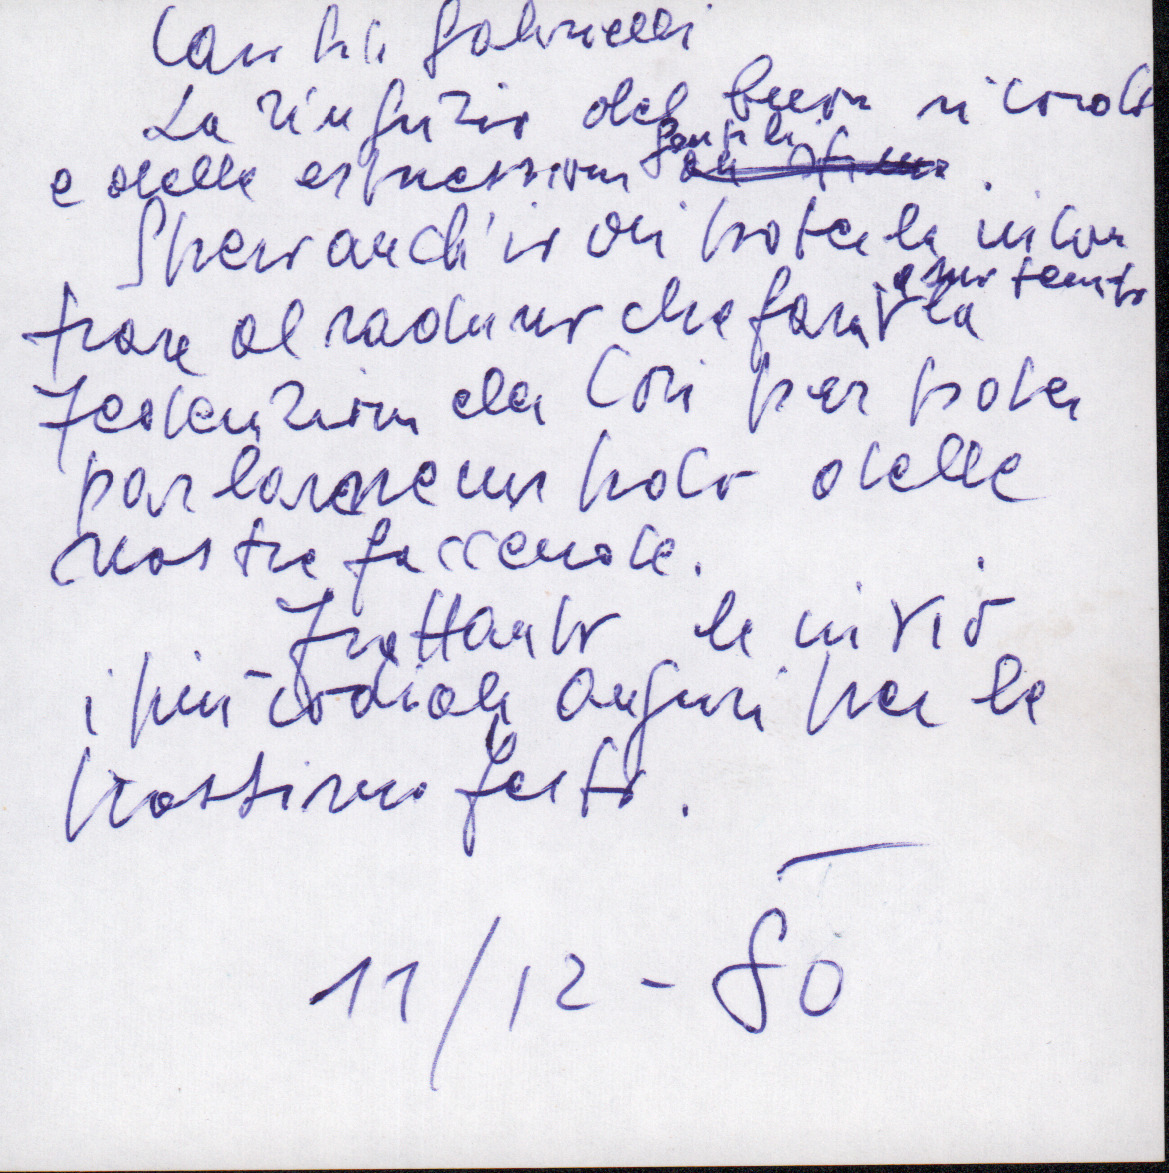 Caro Sig. Gabrielli
La ringrazio del buon ricordo
e delle espressioni gentili.
Spero anch'io di poterla incon
trare al raduno che farà a suo tempo la
Federazione dei Cori per poter
parlare un poco delle
nostre faccende.
Frattanto le invio
i più cordiali auguri per le
prossime feste.
11/12-80